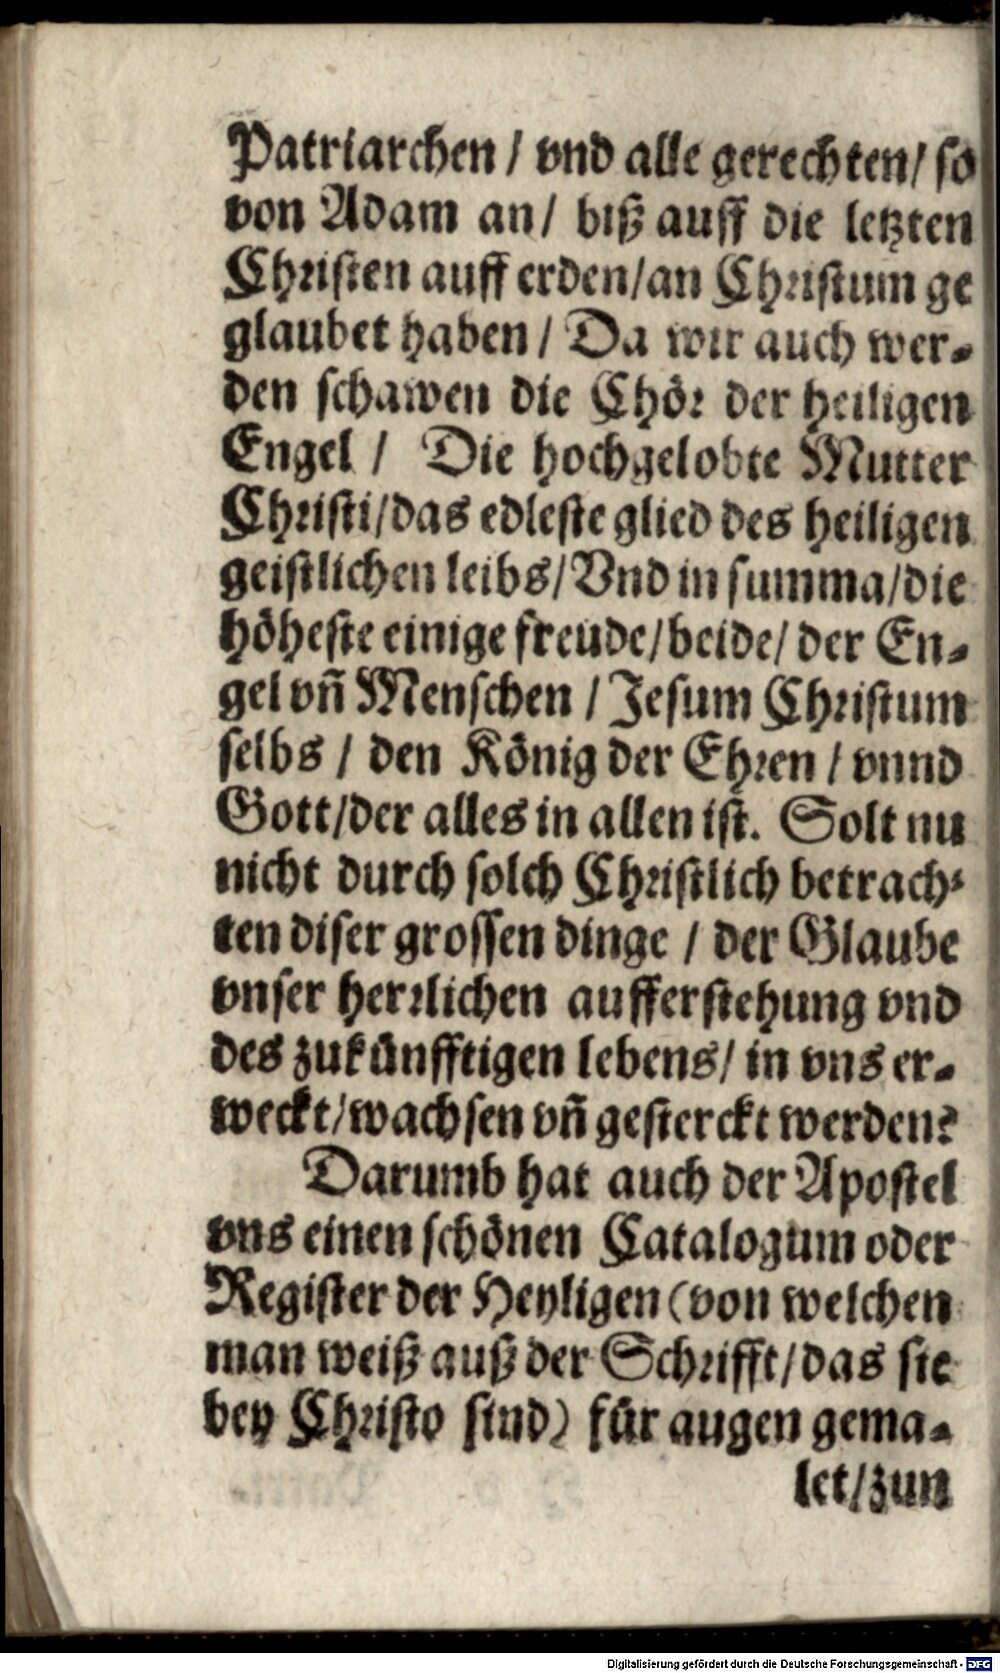 Patriarchen / vnd alle gerechten / so
von Adam an / biß auff die letzten
Christen auff erden / an Christum ge
glaubet haben / Da wir auch wer-
den schawen die Chör der heiligen
Engel / Die hochgelobte Mutter
Christi / das edleste glied des heiligen
geistlichen leibs / Vnd in summa / die
höheste einige freude / beide / der En-
gel vñ Menschen / Jesum Christum
selbs / den König der Ehren / vnnd
Gott / der alles in allen ist. Solt nu
nicht durch solch Christlich betrach-
ten diser grossen dinge / der Glaube
vnser herrlichen aufferstehung vnd
des zukünfftigen lebens / in vns er-
weckt / wachsen vñ gesterckt werden?
Darumb hat auch der Apostel
vns einen schönen Catalogum oder
Register der Heyligen (von welchen
man weiß auß der Schrifft / das sie
bey Christo sind) für augen gema-
let / zun
Digitalisierung gefördert durch die Deutsche Forschungsgemeinschaft - DFG